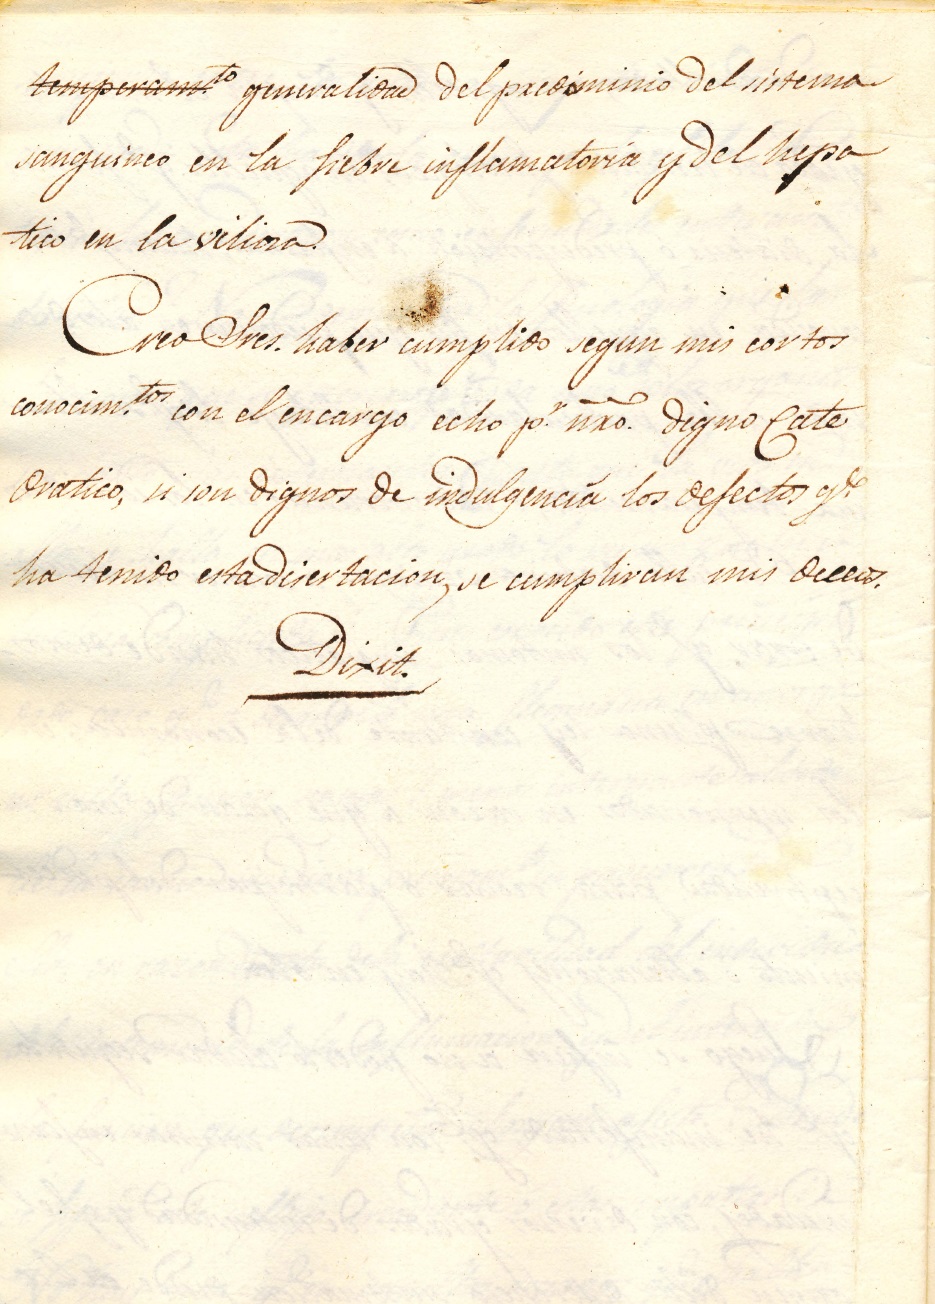 temperam.to generalidad del predominio del sistema
sanguineo en la fiebre inflamatoria y del hepa
tico en la viliosa.
Creo Sres. haber cumplido segun mis cortos
conocim.tos con el encargo echo p.r nro. digno Cate
dratico, si son dignos de indulgencia los defectos q.e
ha tenido esta disertacion, se cumpliran mis deceos.
Dixit.